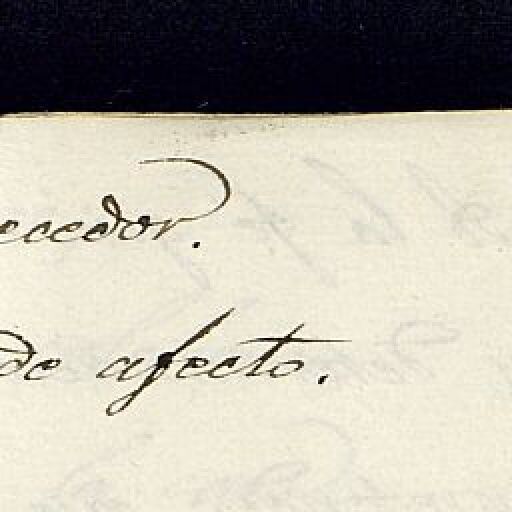 ecedor.
de afecto.